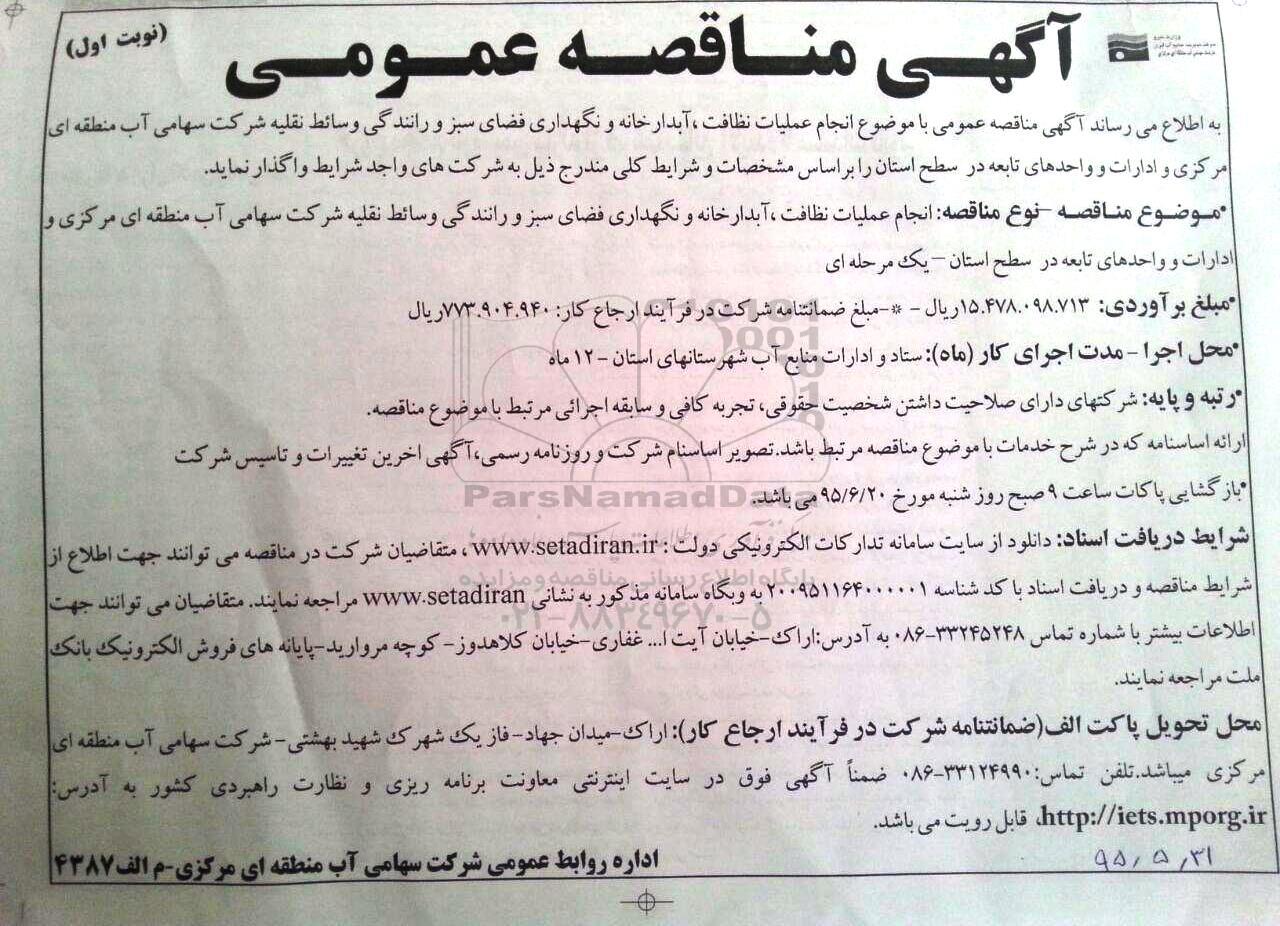 (نوبت اول)
آگهی مناقصه عمومی
وزارت نیرو
به اطلاع می رساند آگهی مناقصه عمومی با موضوع انجام عملیات نظافت ،آبدارخانه و نگهداری فضای سبز و رانندگی وسائط نقلیه شرکت سهامی آب منطقه ای
مرکزی و ادارات و واحدهای تابعه در سطح استان را براساس مشخصات و شرایط کلی مندرج ذیل به شرکت های واجد شرایط واگذار نماید.
•موضوع مناقصه –نوع مناقصه: انجام عملیات نظافت ،آبدارخانه و نگهداری فضای سبز و رانندگی وسائط نقلیه شرکت سهامی آب منطقه ای مرکزی و
ادارات و واحدهای تابعه در سطح استان – یک مرحله ای
•مبلغ برآوردی: ۱۵.۴۷۸.۰۹۸.۷۱۳ریال - *-مبلغ ضمانتنامه شرکت در فرآیند ارجاع کار: ۷۷۳.۹۰۴.۹۴۰ریال
•محل اجرا - مدت اجرای کار (ماه): ستاد و ادارات منابع آب شهرستانهای استان - ۱۲ ماه
•رتبه و پایه: شرکتهای دارای صلاحیت داشتن شخصیت حقوقی، تجربه کافی و سابقه اجرائی مرتبط با موضوع مناقصه.
ارائه اساسنامه که در شرح خدمات با موضوع مناقصه مرتبط باشد.تصویر اساسنام شرکت و روزنامه رسمی،آگهی اخرین تغییرات و تاسیس شرکت
•بازگشایی پاکات ساعت ۹ صبح روز شنبه مورخ ۹۵/۶/۲۰ می باشد.
ParsNamadData
شرایط دریافت اسناد: دانلود از سایت سامانه تدارکات الکترونیکی دولت : www.setadiran.ir ، متقاضیان شرکت در مناقصه می توانند جهت اطلاع از
پایگاه اطلاع رسانی مناقصه و مزایده
شرایط مناقصه و دریافت اسناد با کد شناسه ۲۰۰۹۵۱۱۶۴۰۰۰۰۰۱ به وبگاه سامانه مذکور به نشانی www.setadiran مراجعه نمایند. متقاضیان می توانند جهت
۰۲۱-۸۸۳۴۹۶۷۰-۵
اطلاعات بیشتر با شماره تماس ۳۳۲۴۵۲۴۸-۰۸۶ به آدرس:اراک-خیابان آیت ا... غفاری-خیابان کلاهدوز- کوچه مروارید-پایانه های فروش الکترونیک بانک
ملت مراجعه نمایند.
محل تحویل پاکت الف(ضمانتنامه شرکت در فرآیند ارجاع کار): اراک-میدان جهاد-فاز یک شهرک شهید بهشتی- شرکت سهامی آب منطقه ای
مرکزی میباشد.تلفن تماس:۳۳۱۲۴۹۹۰-۰۸۶ ضمناً آگهی فوق در سایت اینترنتی معاونت برنامه ریزی و نظارت راهبردی کشور به آدرس:
http://iets.mporg.ir، قابل رویت می باشد.
اداره روابط عمومی شرکت سهامی آب منطقه ای مرکزی-م الف۴۳۸۷
۹۵،۵،۳۱